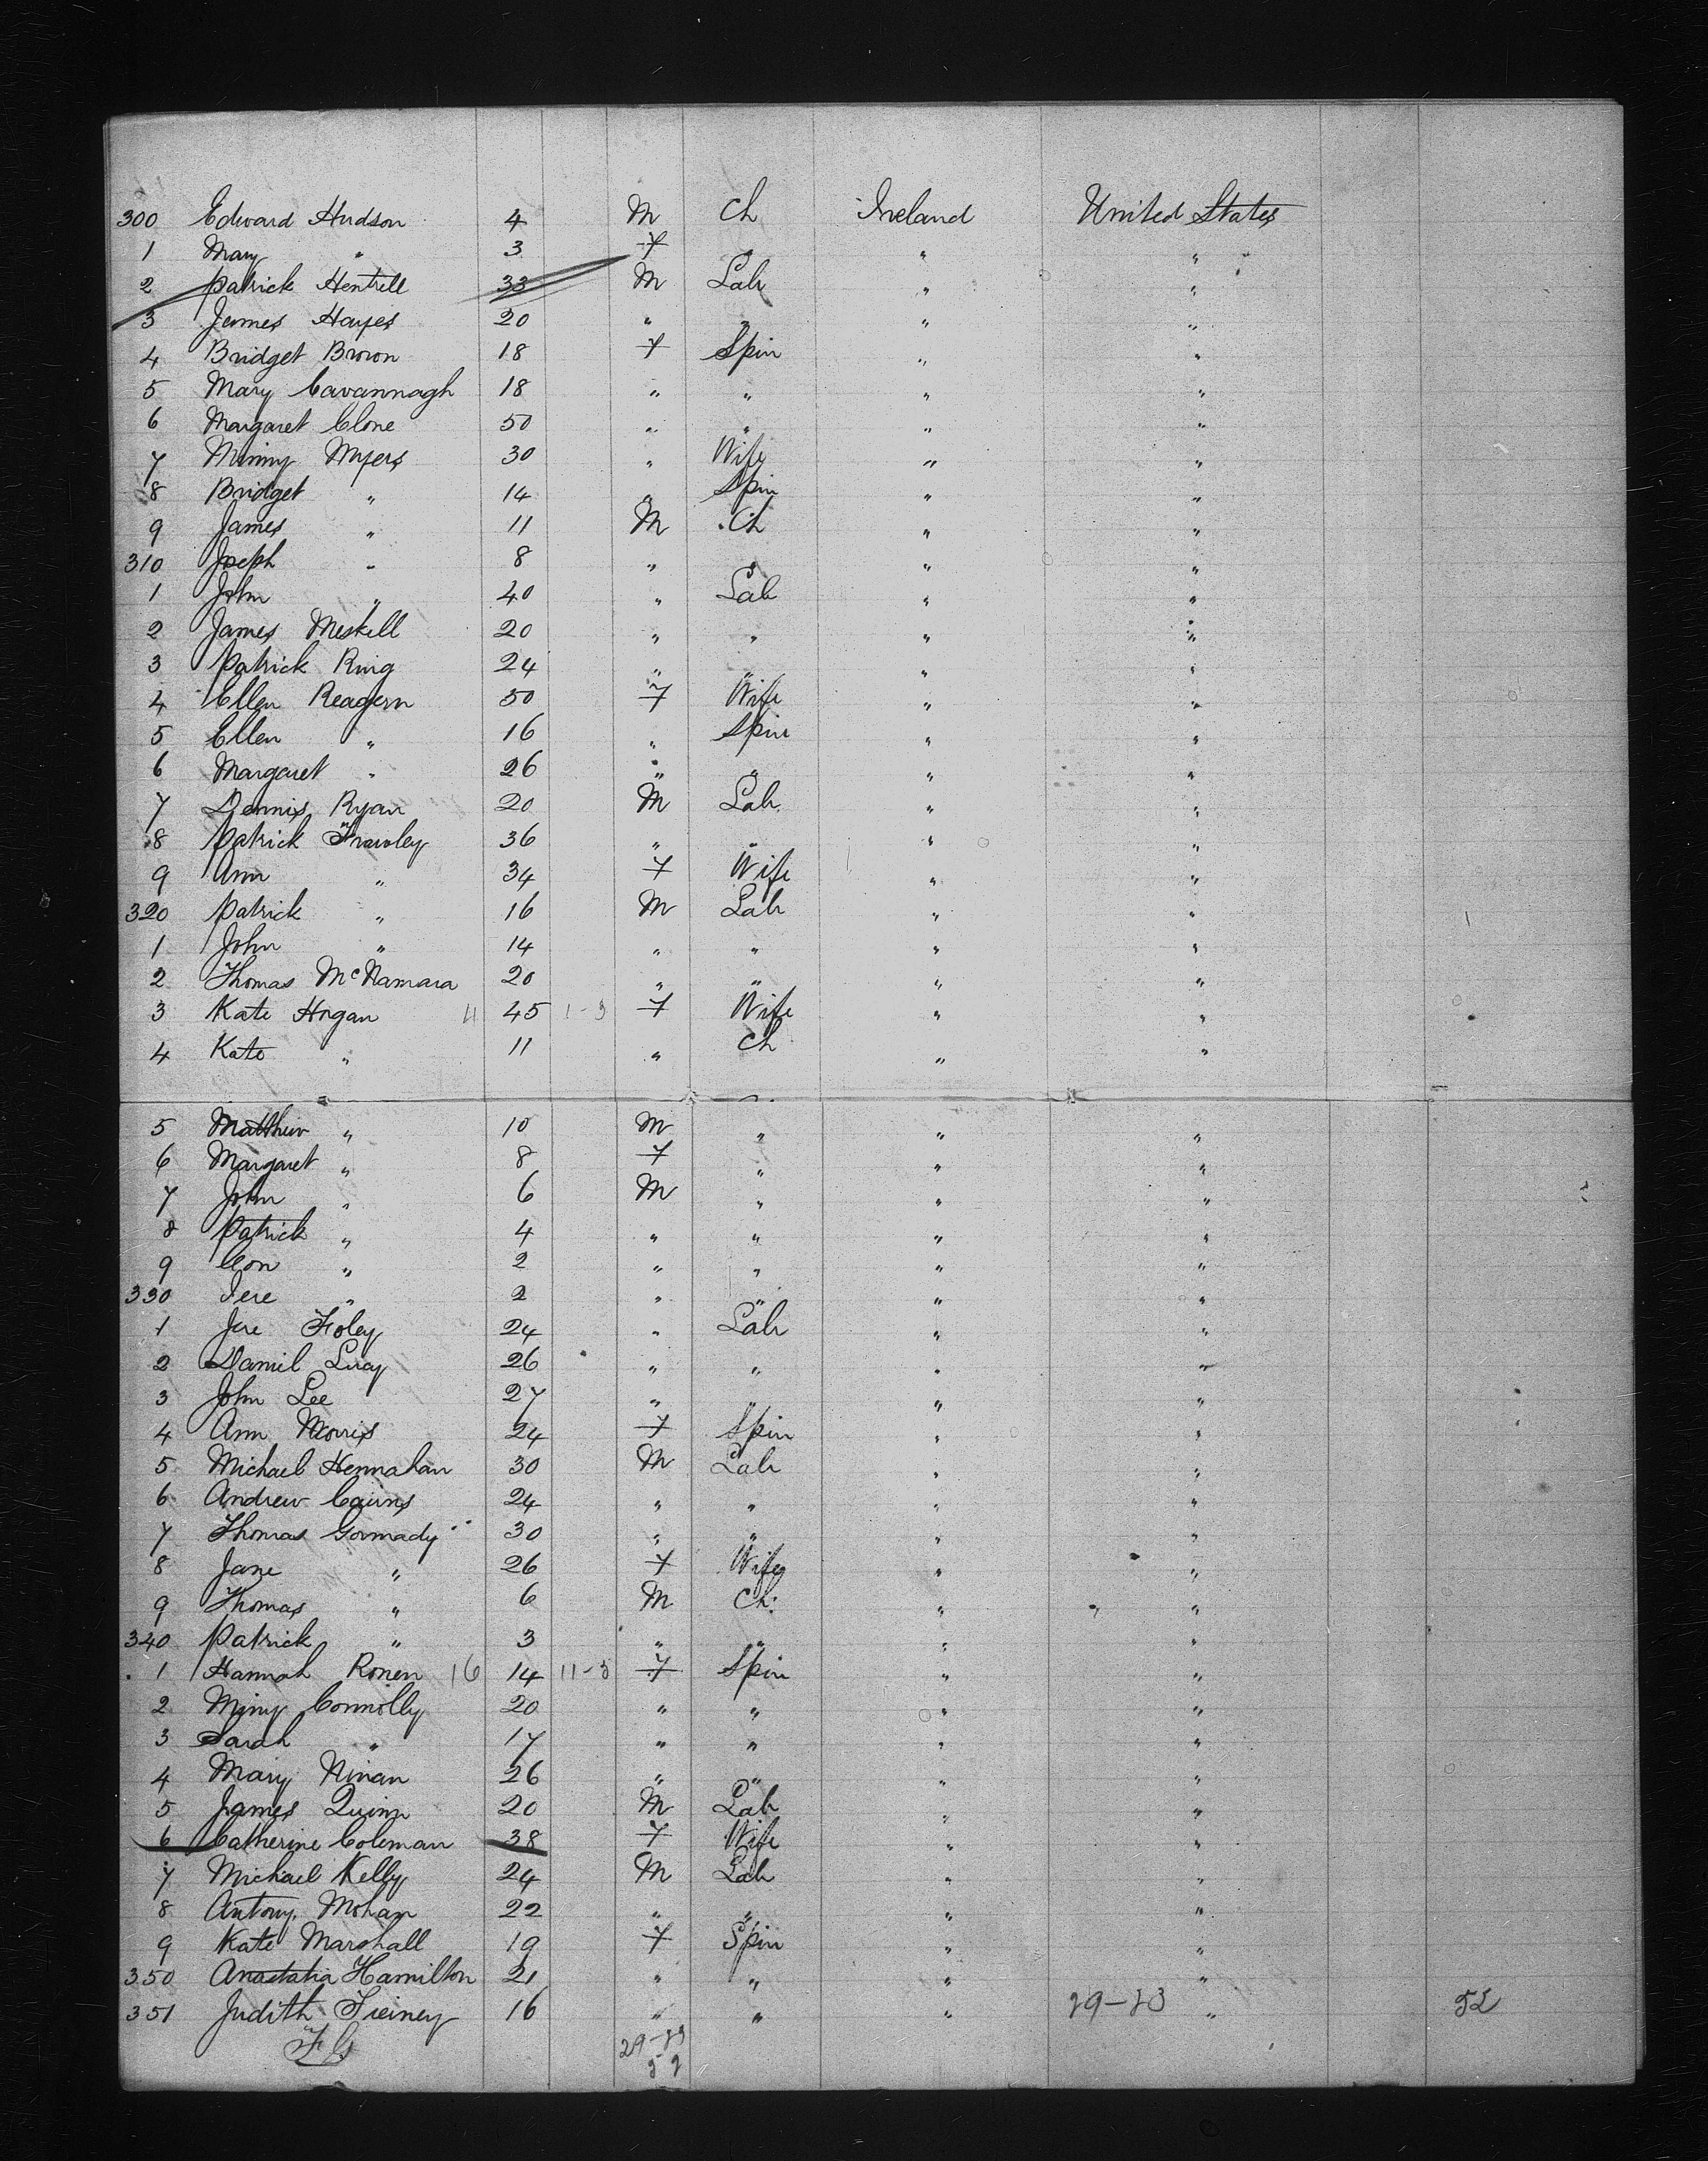 300 Edward Hudson 4 M Ch Ireland United States
1 Mary " 3 F " " "
2 Patrick Hentrell 33 M Lab " "
3 James Hayes 20 " " " "
4 Bridget Brown 18 F Spin " "
5 Mary Cavannagh 18 " " " "
6 Margaret Clone 50 " " " "
7 Minny Myers 30 " Wife " "
8 Bridget " 14 " Spin " "
9 James " 11 M Ch " "
310 Joseph " 8 " " " "
1 John " 40 " Lab " "
2 James Meskell 20 " " " "
3 Patrick Ring 24 " " " "
4 Ellen Reagern 50 F Wife " "
5 Ellen " 16 " Spin " "
6 Margaret " 26 " " " "
7 Dennis Ryan 20 M Lab " "
8 Patrick Frawley 36 " " " "
9 Ann " 34 F Wife " "
320 Patrick " 16 M Lab " "
1 John " 14 " " " "
2 Thomas McNamara 20 " " " "
3 Kate Hogan 11 45 1-3 F Wife " "
4 Kate " 11 " Ch " "
5 Matthew " 10 M " " "
6 Margaret " 8 F " " "
7 John " 6 M " " "
8 Patrick " 4 " " " "
9 Con " 2 " " " "
330 Jere " 2 " " " "
1 Jere Foley 24 " Lab " "
2 Daniel Lucy 26 " " " "
3 John Lee 27 " " " "
4 Ann Morris 24 F Spin " "
5 Michael Hennahan 30 M Lab " "
6 Andrew Cairns 24 " " " "
7 Thomas Gormady 30 " " " "
8 Jane " 26 F Wife " "
9 Thomas " 6 M Ch " "
340 Patrick " 3 " " " "
1 Hannah Ronen 16 14 11-3 F Spin " "
2 Miny Connolly 20 " " " "
3 Sarah " 17 " " " "
4 Mary Ninan 26 " " " "
5 James Quinn 20 M Lab " "
6 Catherine Coleman 38 F Wife " "
7 Michael Kelly 24 M Lab " "
8 Antony Mohan 22 " " " "
9 Kate Marshall 19 F Spin " "
350 Anastatia Hamilton 21 " " " "
351 Judith Tieiney 16 " " " 29-23 " 52
29-23
52